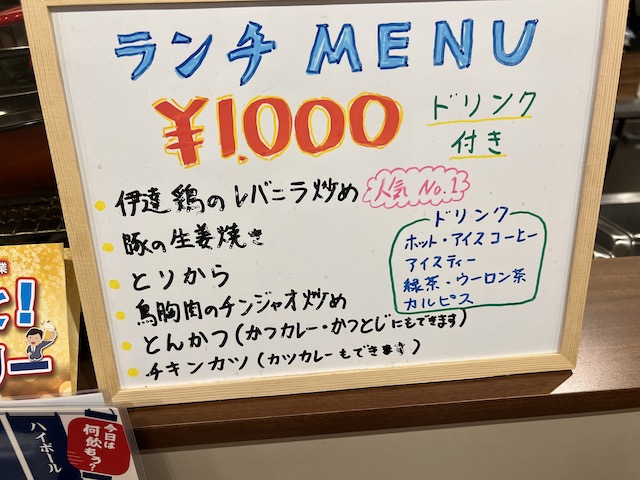 ランチ MENU
¥1.000
ドリンク
付き
伊達鶏のレバニラ炒め
人気 No.1
豚の生姜焼き
とりから
鳥胸肉のチンジャオ炒め
とんかつ(かつカレー・かつとじにもできます)
チキンカツ(カツカレーもできます)
ドリンク
ホット・アイスコーヒー
アイスティー
緑茶・ウーロン茶
カルピス
業
!
リー
今日は
何飲もう?
ハイボール